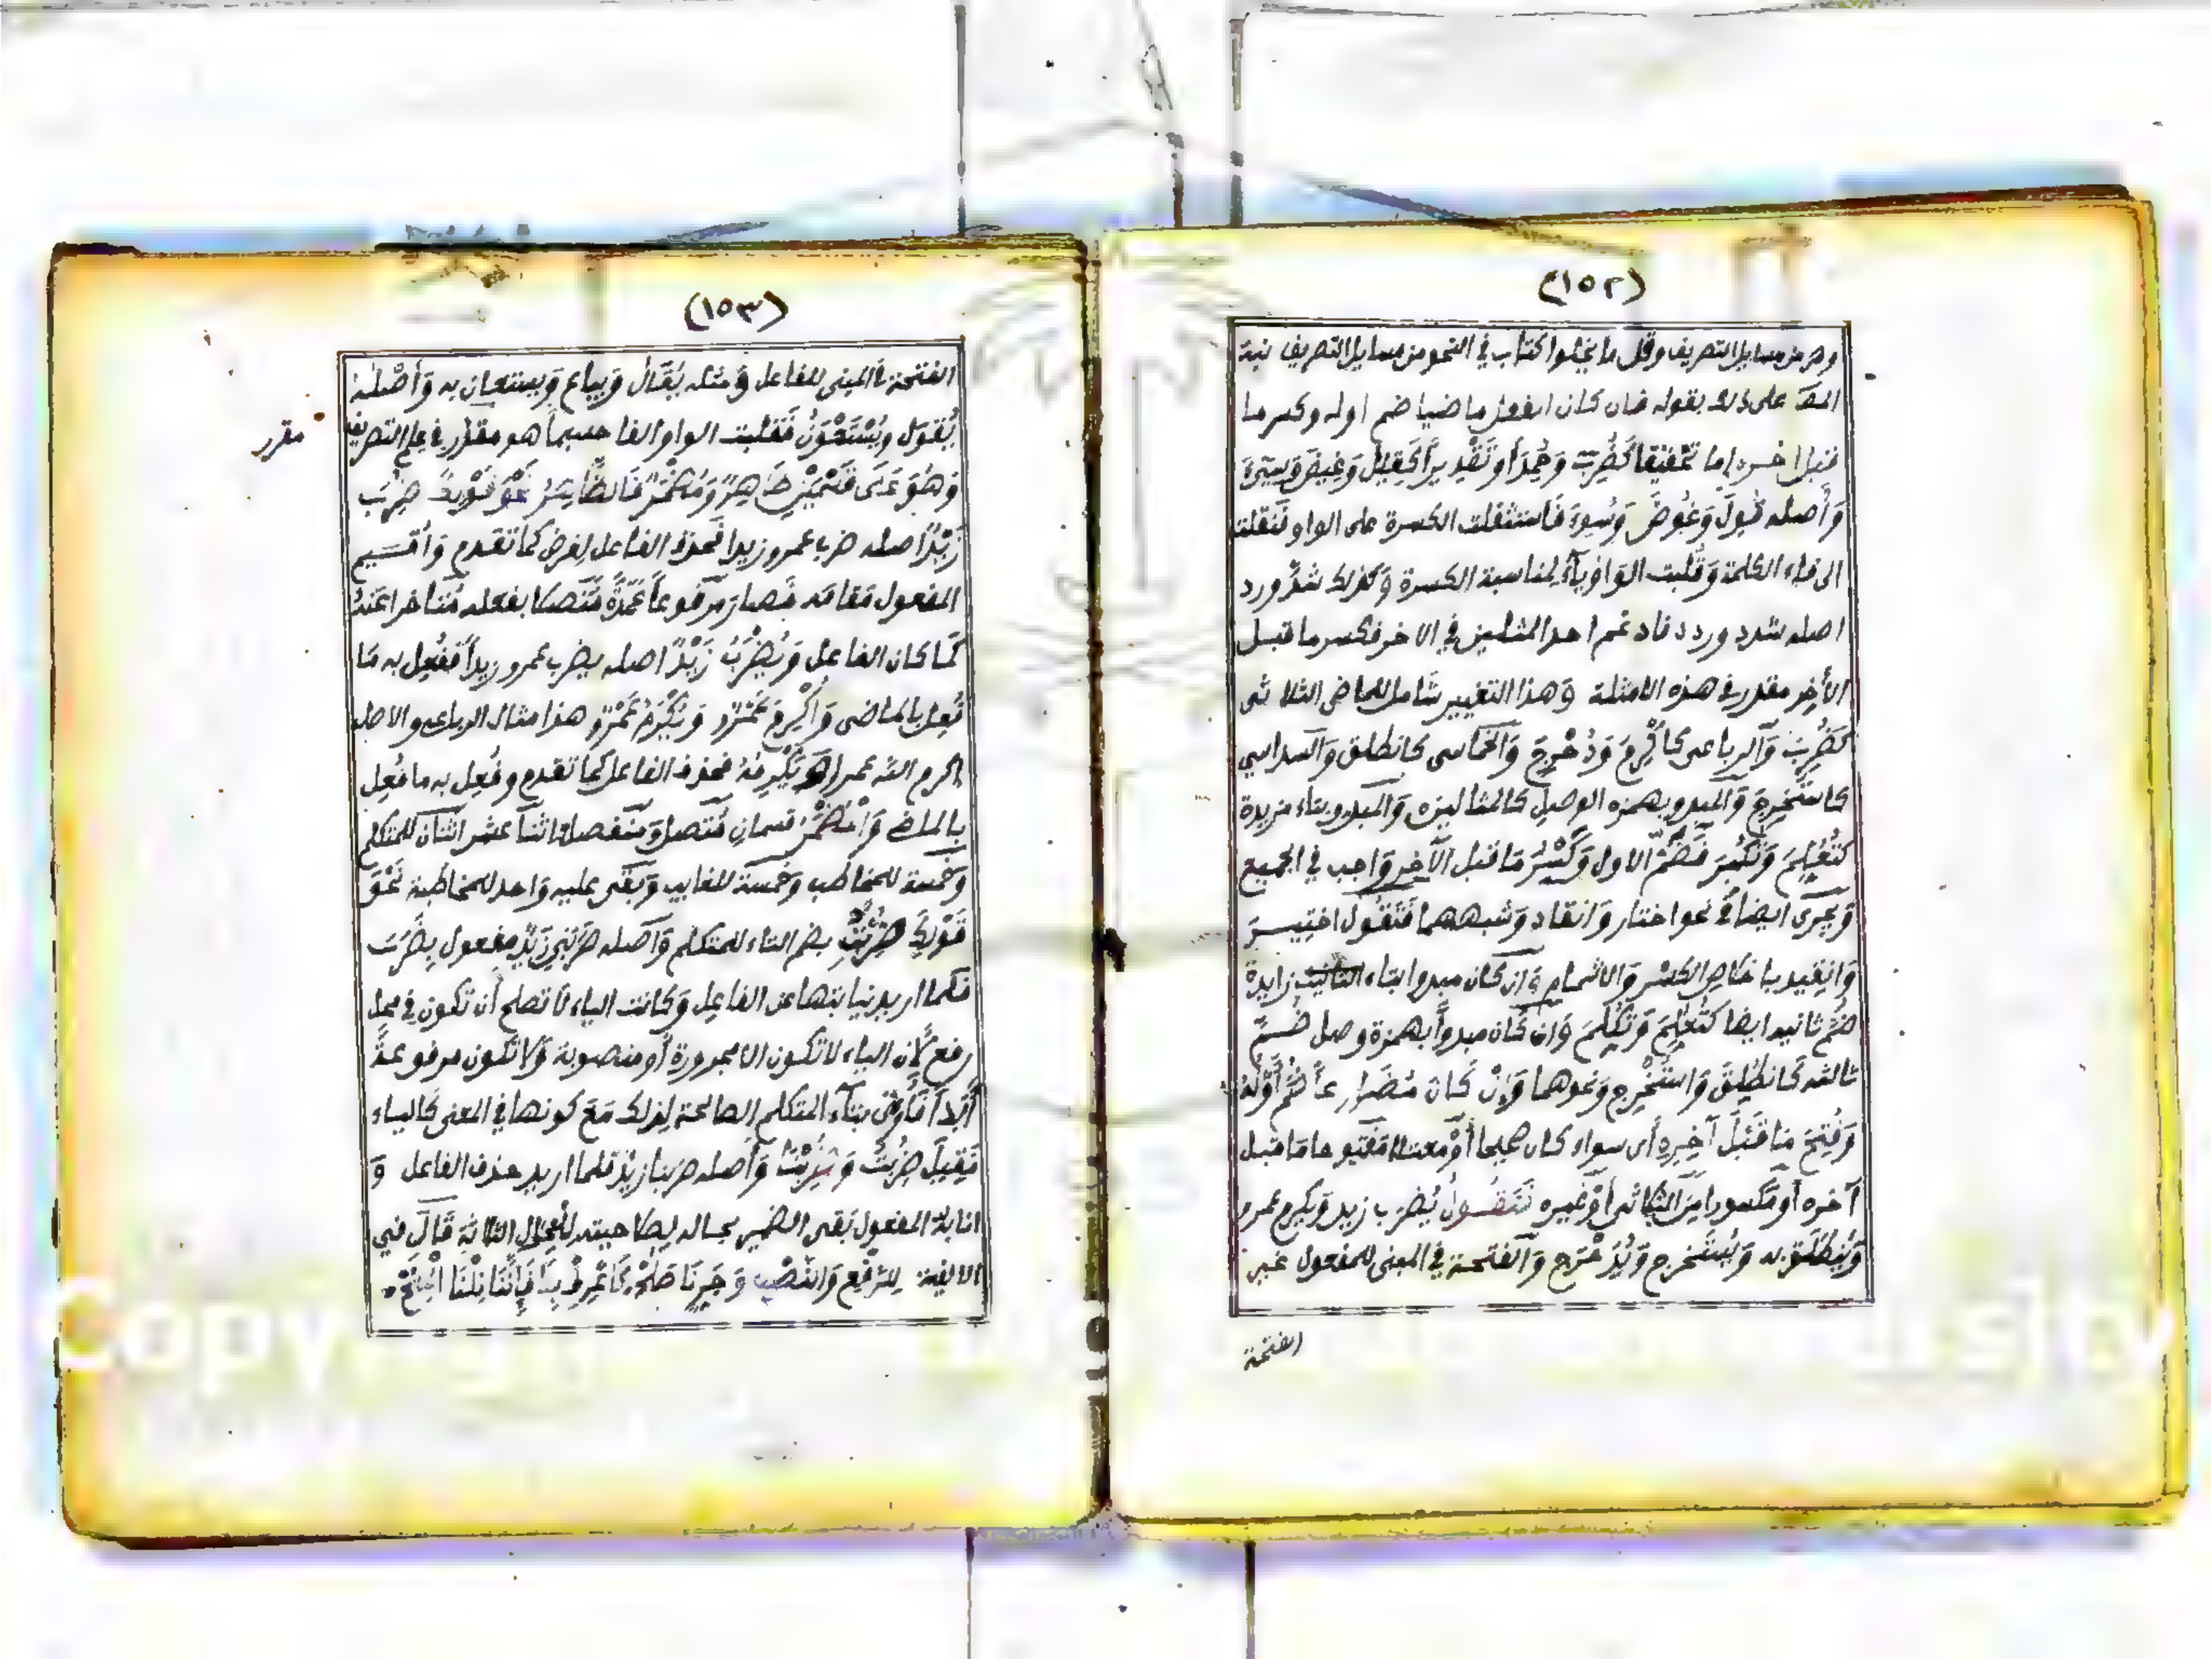 (١٥٢)
وهو من مسايل التصريف وقل ما يخلوا كتاب في النحو من مسايل التصريف نبه
المص على ذلك بقوله فان كان الفعل ماضيا ضم اوله وكسر ما
قبل اخره إما تحقيقا كضُرِبَ وحُمِدَ أو تقديراً كقِيلَ وغِيضَ وسِيءَ
وَأصله قُوِلَ وَغُوِضَ وَسُوِءَ فَاستثقلت الكسرة على الواو فنقلت
الى فاء الكلمة وَقُلبت الوَاوُ ياءً لمناسبة الكسرة وكذلك شدّ ورد
اصله شدد وردد فادغم احد المثلين في الاخر فكسر ما قبل
الأخِر مقدر في هذه الامثلة وَهذا التغيير شَامل للماضى الثلاثى
كضُرِبَ وَالرباعى كاُكْرِمَ وَدُحْرِجَ وَالخماسى كانطلق وَالسداسي
كاستُخرِجَ وَالمبدو بهمزه الوصل كالمثالين وَالمبدو بتاء مزيدة
كتُعُلِّمَ وَتُكُبِّرَ فَضَمُّ الاول وَكَسْرُ مَا قبل الآخِر وَاجب في الجميع
وَيجرى ايضا في نحو اختار وَانقاد وَشبههما فَتَقُول اختِيرَ
وَانقِيد باخلاص الكسْر وَالاشمام وَان كان مبدوا بتاء زايدة
ضُمَّ ثانيه ايضا كتُعُلِّمَ وَتُكُلِّمَ وَان كَان مبدوأً بهمزة وصل ضُمَّ
ثالثه كَانطُلِقَ وَاستُخْرِج وَنحوهما وَإِنْ كَانَ مُضَارِعاً ضُمَّ أَوَّلُهُ
وَفُتِحَ مَا قَبْلَ آخِرِهِ أى سواء كان صحيحا أوْ معتلا مَفتوحا مَا قبل
آخره أو مَكسورا مِنَ الثلاثى أوْ غيره تَقُولُ يُضرَب زيد وَيكرم عمرو
وَيُنطَلَقُ به وَيُستَخرج وَيُدَحْرَج وَالفتحة في المبنى للمفعول غير
الفتحة
(١٥٣)
الفتحة في المبنى للفاعل وَمثله يُقَالُ وَيباع وَيستعان به وَأصْلهُ
يُقْوَل ويُسْتَعْوَنُ فَقلبت الواو الفا حسبما هو مقرر في علم التصريف
مقرر
وَهُوَ عَلَى قَسْمَيْنِ ظَاهِرٌ وَمُضْمَرٌ فَالظَّاهِرُ نَحْوُ قَوْلِكَ ضُرِبَ
زَيْدٌ اصله ضرب عمرو زيدا فَحذف الفاعل لغرض كما تقدم وَأقيم
المفعول مَقامَه فَصار مَرفوعاً عمدةً مُتَّصلا بفعله مُتأخرا عَنهُ
كَمَا كان الفاعل وَيُضْرَبُ زَيْدٌ اصله يضرب عمرو زيداً فَفُعِل به مَا
فُعل بالماضى وَأُكْرِمَ عَمْرٌو وَيُكْرَمُ عَمْرٌو هذا مثال الرباعى والاصل
اكرم الله عمرا ويُكْرِمُهُ فحذف الفاعل كما تقدم وفُعِل به ما فُعِل
بالماضى وَالْمُضْمَرُ قسمان مُتَّصل وَمنفصل اثنا عشر اثنان للمتكلم
وَخمسة للمخاطب وَخمسة للغايب وَبَقى عليه وَاحد للمخاطبة نَحْوَ
قَوْلِكَ ضُرِبْتُ بضم التاء للمتكلم وَاصله ضَرَبَنِي زَيْدٌ مفعول بِضَرَبَ
فلما اريد نيابتها عن الفاعِل وَكانت الياء لا تصلح أن تكون في محل
رفع لأن الياء لا تكون الا مجرورة أو منصوبة وَلا تكون مرفوعةً
أَبداً فأُوتى بتاء المتكلم الصالحة لِذلك مَعَ كونها في المعنى كَالياء
فَقِيلَ ضُرِبْتُ وَضُرِبْنَا وَأصله ضربنا زيدٌ فلما اريد حذف الفاعل وَ
انابة المفعول بَقى الضمير بحاله لِصلاحيته للأحوال الثلاثة قَالَ في
الالفية لِلرَّفْعِ وَالنَّصْبِ وَجَرِّنَا صَلَحْ كَاعْرِفْ بِنَا فَإِنَّنَا نِلْنَا الْمِنَحْ